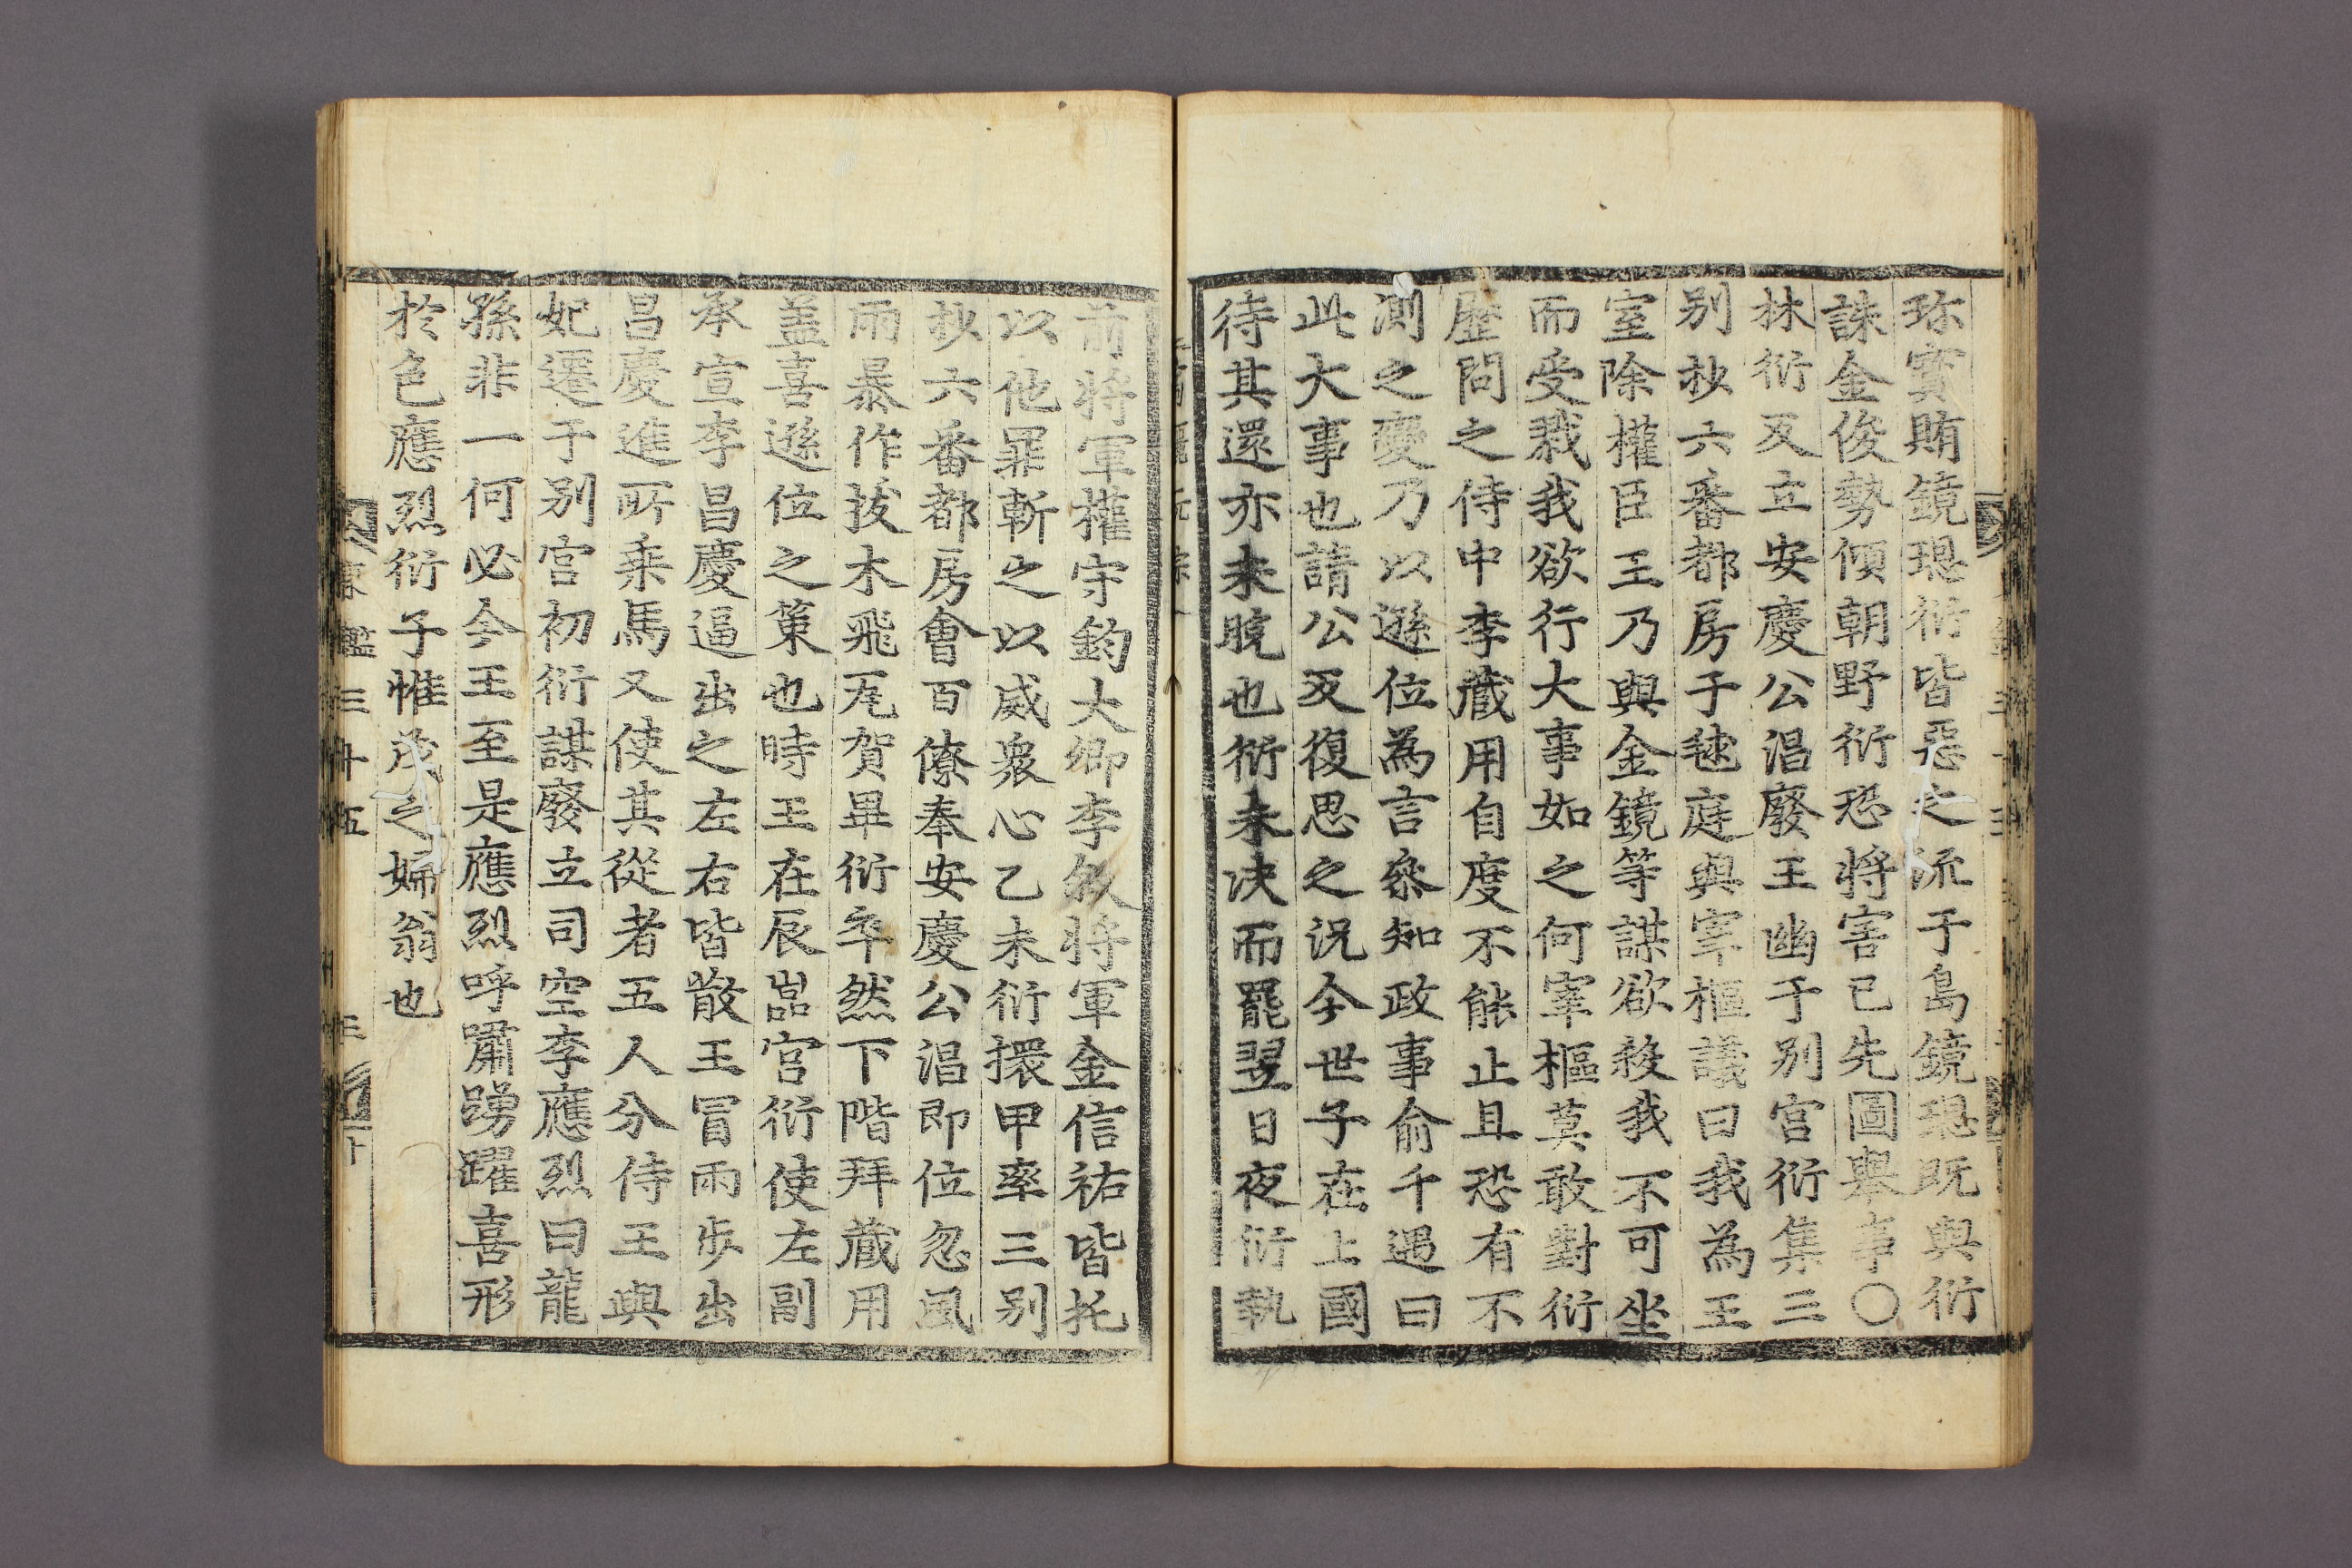 珎寳賄鏡珢衍皆惡之流于島鏡珢既與衍
誅金俊勢傾朝野衍恐將害已先圖擧事〇
林衍反立安慶公淐廢王幽于别宫衍集三
别抄六番都房于毬庭與宰樞議曰我為王
室除權臣王乃與金鏡等謀欲殺我不可坐
而受戮我欲行大事如之何宰樞莫敢對衍
歷問之侍中李藏用自度不能止且恐有不
測之變乃以遜位為言叅知政事俞千遇曰
此大事也請公反復思之况今世子在上國
待其還亦未晩也衍未决而罷翌日夜衍執
前將軍權守鈞大卿李敘將軍金信祐皆托
以他罪斬之以威衆心乙未衍擐甲率三别
抄六番都房會百僚奉安慶公淐即位忽風
雨暴作拔木飛瓦賀畢衍卒然下階拜藏用
盖喜遜位之策也時王在辰嵓宫衍使左副
承宣李昌慶逼出之左右皆散王冒雨步出
昌慶進所乗馬又使其從者五人分侍王與
妃遷于别宫初衍謀廢立司空李應烈曰龍
孫非一何必今王至是應烈呼躍踴躍喜形
於色應烈衍子惟茂之婦翁也
東鑑三十五